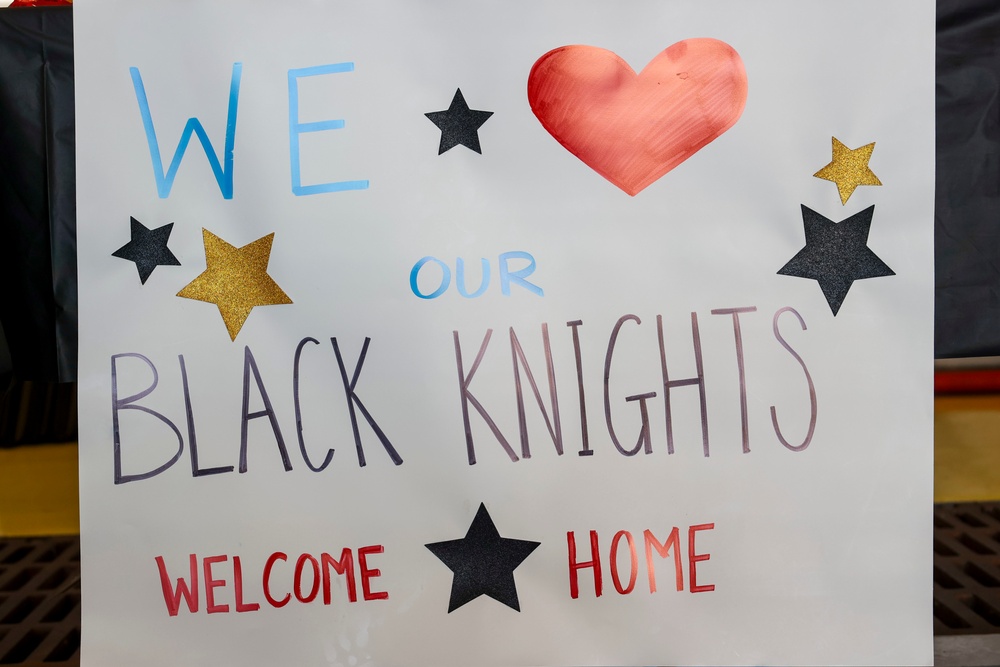 WE
OUR
BLACK KNIGHTS
WELCOME HOME